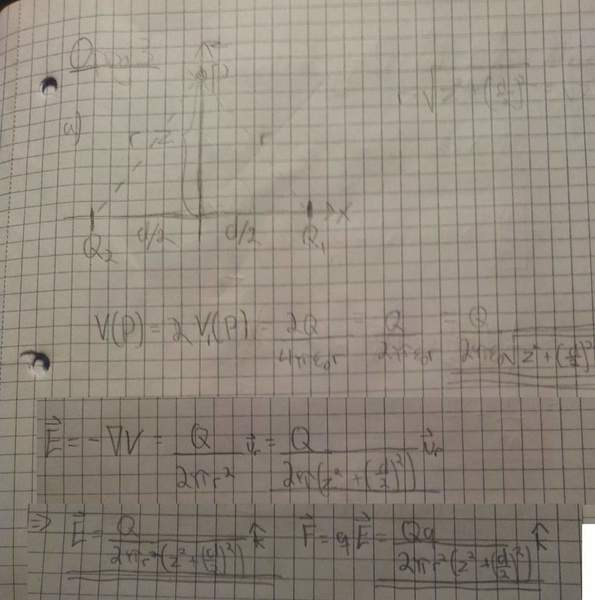 Oppg 3
z
P
√z² + (d/2)²
a)
r z r
x
d/2 d/2
Q₂ Q₁
V(P) = 2 V₁(P) = 2Q/4πε₀r = Q/2πε₀r = Q/2πε₀√z² + (d/2)²
E⃗ = -∇V = Q/2πr² u⃗ᵣ = Q/2π(z² + (d/2)²) u⃗ᵣ
⇒ E⃗ = Q/2πr²(z² + (d/2)²) k̂ F⃗ = qE⃗ = Qq/2πr²(z² + (d/2)²) k̂